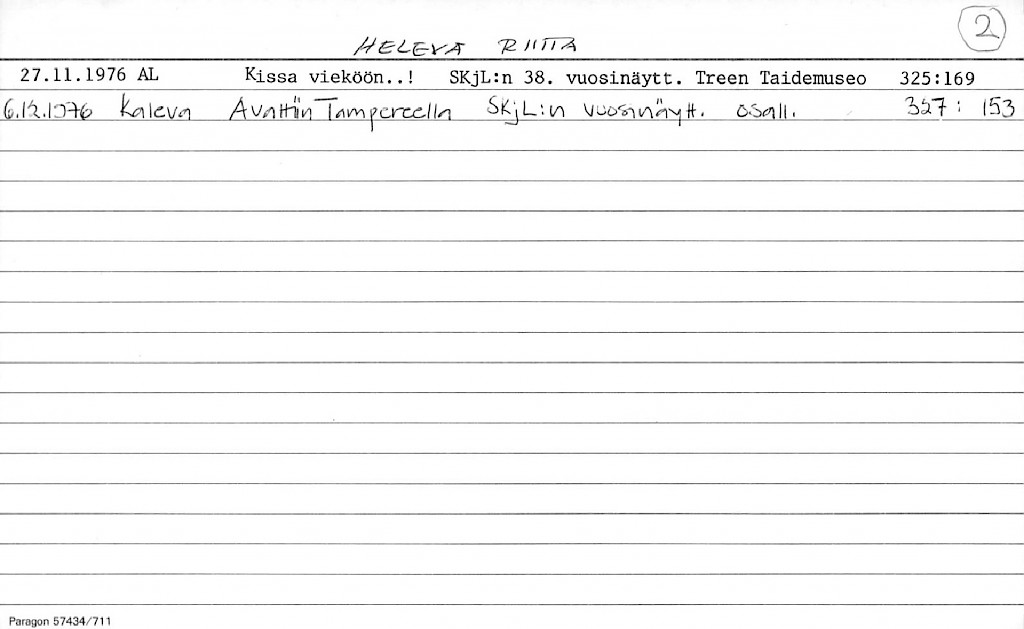 2
HELEVA RIITTA
27.11.1976 AL Kissa vieköön..! SKjL:n 38. vuosinäytt. Treen Taidemuseo 325:169
6.12.1976 Kaleva Avattiin Tampereella SKjL:n vuosinäytt. osall. 327: 153
Paragon 57434/711